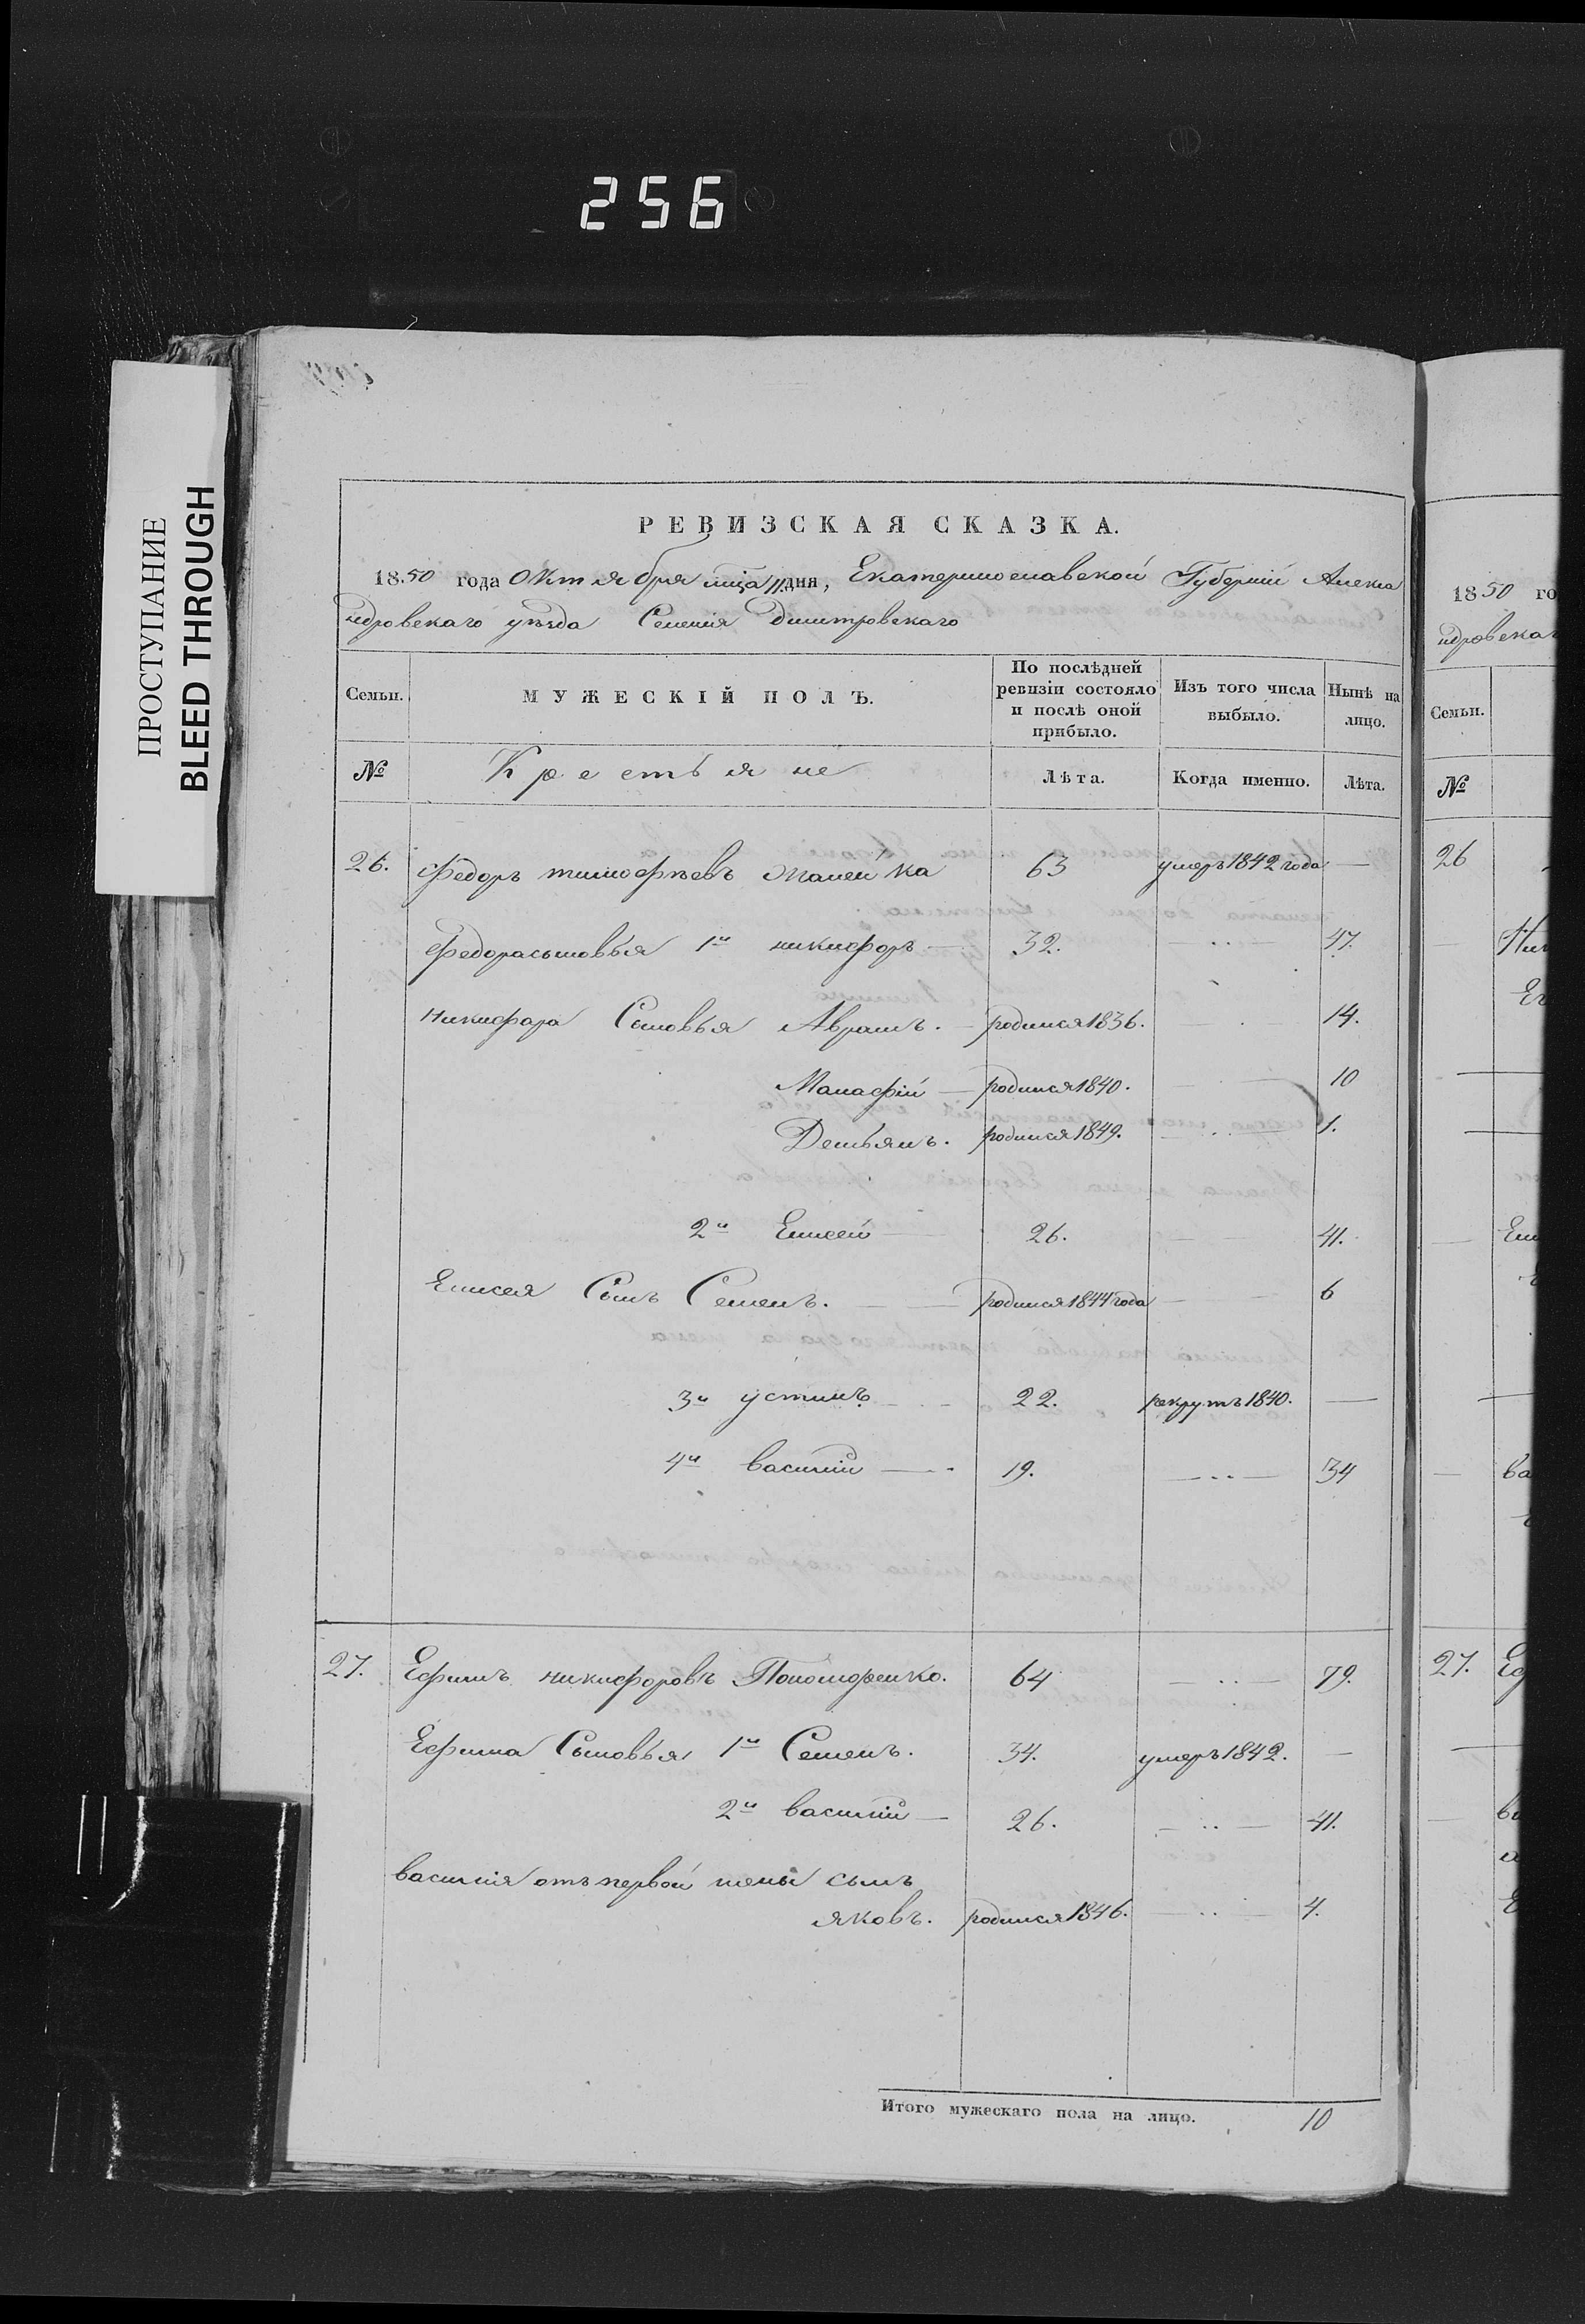 256
ПРОСТУПАНИЕ
BLEED THROUGH
РЕВИЗСКАЯ СКАЗКА.
1850 года октября мца 11 дня, Екатеринославской Губерніи Алекса
ндровскаго уѣзда Селенія Дмитровскаго
Семьи. МУЖЕСКІЙ ПОЛЪ. По послѣдней ревизіи состояло и послѣ оной прибыло. Изъ того числа выбыло. Нынѣ на лицо.
№ Крестьяне Лѣта. Когда именно. Лѣта.
26. Федоръ тимофѣевъ 63 умеръ 1842 года —
Федора сыновья 1й никифоръ — 32. — 47.
никифора Сыновья Аврамъ. — родился 1836. — 14.
Манасфій — родился 1840. — 10
Демьянъ. родился 1849. — 1.
2й Елисей — 26. — 41.
Елисея Сынъ Семенъ. — родился 1844 года — 6
3й устинъ — 22. рекрутъ 1840. —
4й василій — 19. — 34
27. Ефимъ никифоровъ Пономоренко. 64 — 79.
Ефима Сыновья 1й Семенъ. 34. умеръ 1842. —
2й василій — 26. — 41.
василія отъ первой жены сынъ
яковъ. родился 1846. — 4.
Итого мужескаго пола на лицо. 10
1850 го
ндровскаг
Семьи.
№
26
27.